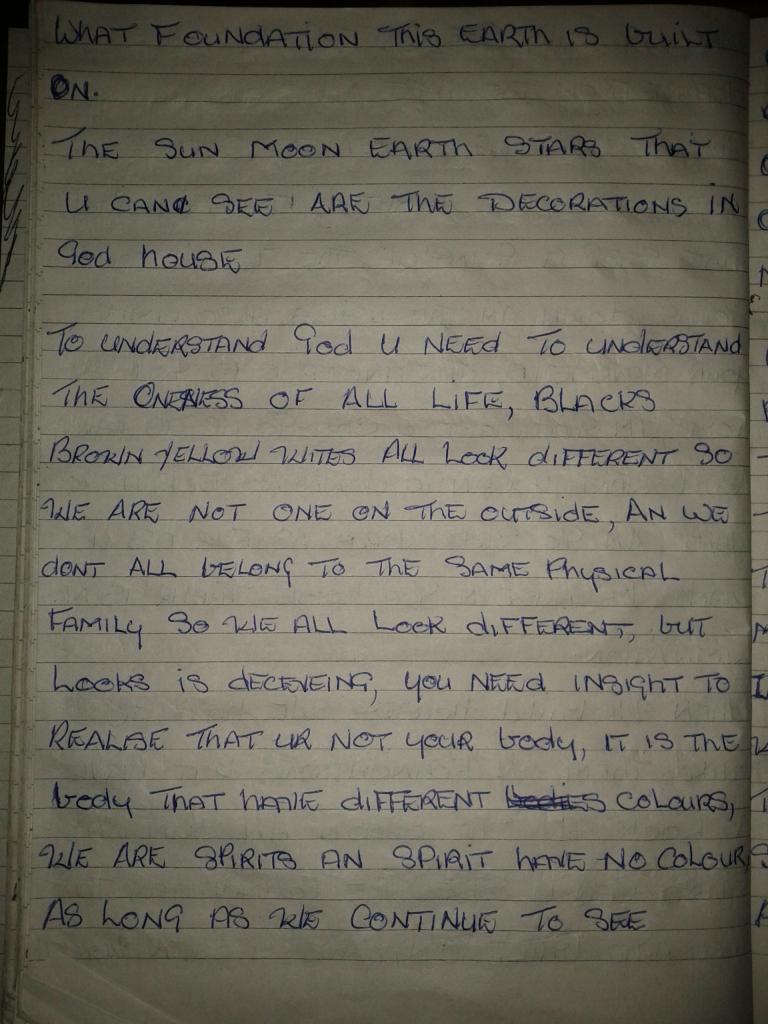 WHAT FOUNDATION THIS EARTH IS BUILT
ON.
THE SUN MOON EARTH STARS THAT
U CAN SEE ARE THE DECORATIONS IN
God HOUSE
TO UNDERSTAND God U NEED TO UNDERSTAND
THE ONENESS OF ALL LIFE, BLACKS
BROWN YELLOW WITES ALL LOOK DIFFERENT SO
WE ARE NOT ONE ON THE OUTSIDE, AN WE
DONT ALL BELONG TO THE SAME PHYSICAL
FAMILY SO WE ALL LOOK DIFFERENT, BUT
LOOKS IS DECEVEING, YOU NEED INSIGHT TO
REALISE THAT UR NOT YOUR body, IT IS THE
body THAT HAVE DIFFERENT COLOURS,
WE ARE SPIRITS AN SPIRIT HAVE NO COLOUR
AS LONG AS WE CONTINUE TO SEE